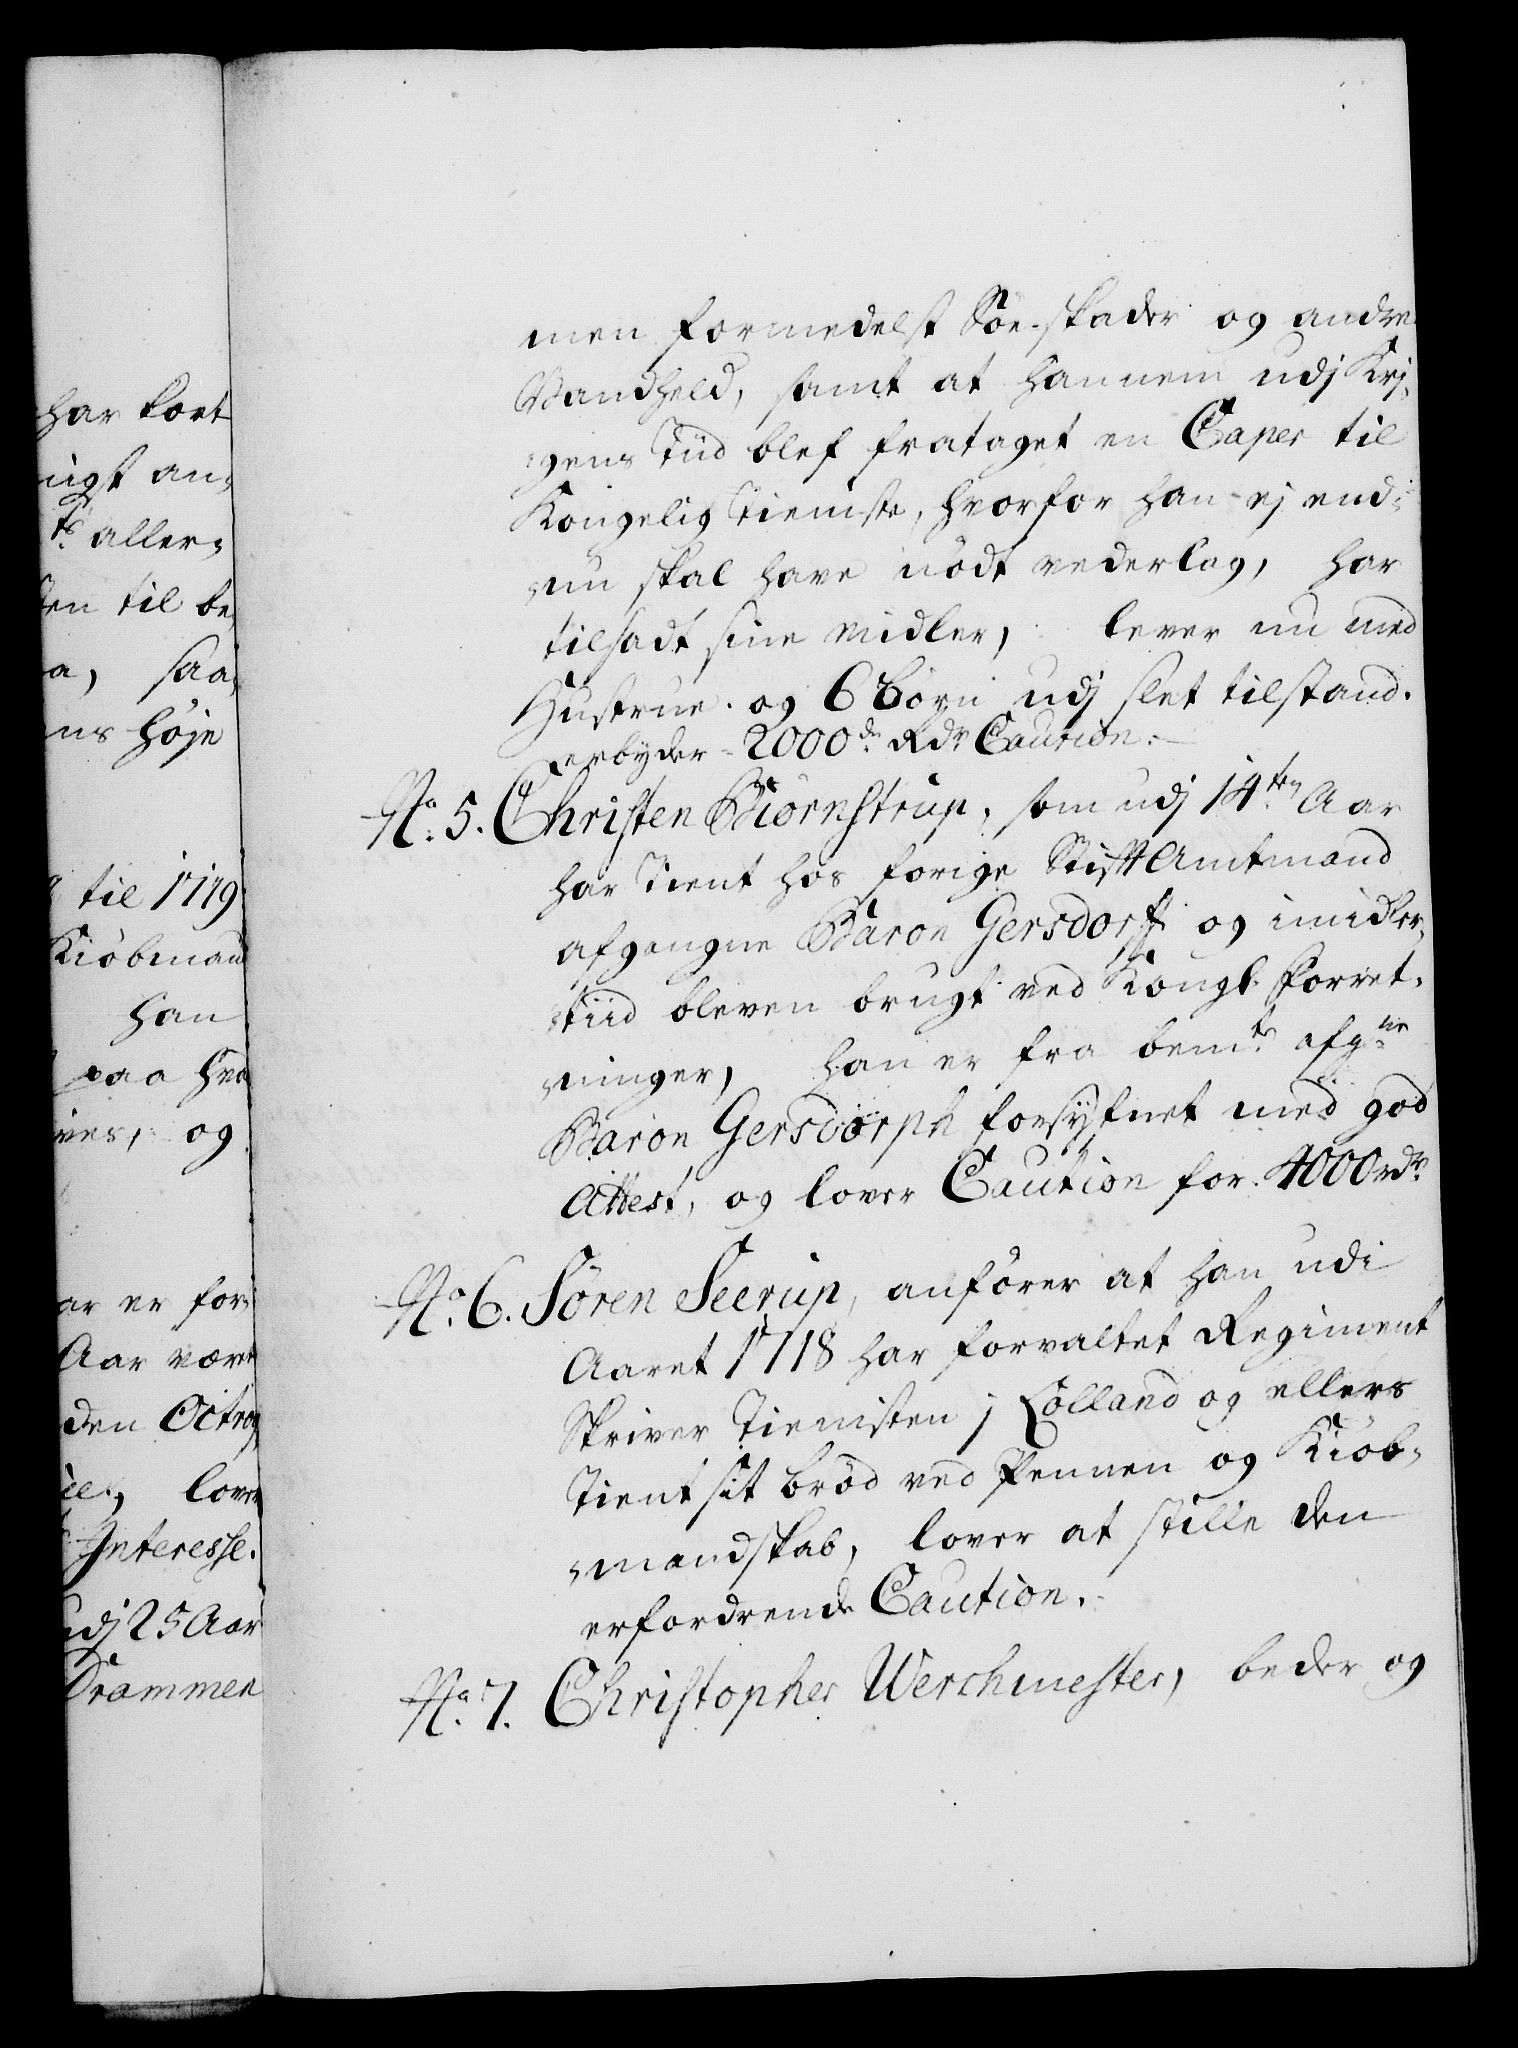 har kort
nigst an¬
ts. aller¬
ten til be
a, saa
ns høje
til 1719
Kiøbmand
han
paa hve
ives, og
ar er for
Aar være
den Octroj
ie, lover
Interesse.
udj 25 Aar
Drammen
men formedelst Søe-skader og andre
Vandheld, samt at hannem udj Kri¬
gens Tiid blef frataget en Caper til
Kongelig Tieniste, hvorfor han ej end¬
nu skal have nødt vederlag, har
tilsadt sine midler, lever nu med
Hustrue og 6 børn udj slet tilstand.
erbyder 2000de Rdr Caution.
No. 5. Christen Biørnstrup, som udj 14ten Aar
har Tient hos forige StifftAmtmand
afgangne Baron Gersdorff og imidler¬
tiid bleven brugt ved Kongl. Forret¬
ninger, han er fra bemte afgne
Baron Gersdorph forsÿfnet med god
Attest, og lover Caution for 4000 rdr.
No. 6. Søren Seerup, anfører at han udi
Aaret 1718 har forvaltet Regiment
Skriver Tienisten j Lolland og ellers
Tient sit brød ved Pennen og Kiøb¬
mandskab, lover at stille den
erfordrende Caution.
No. 7. Christopher Werchmester, beder og